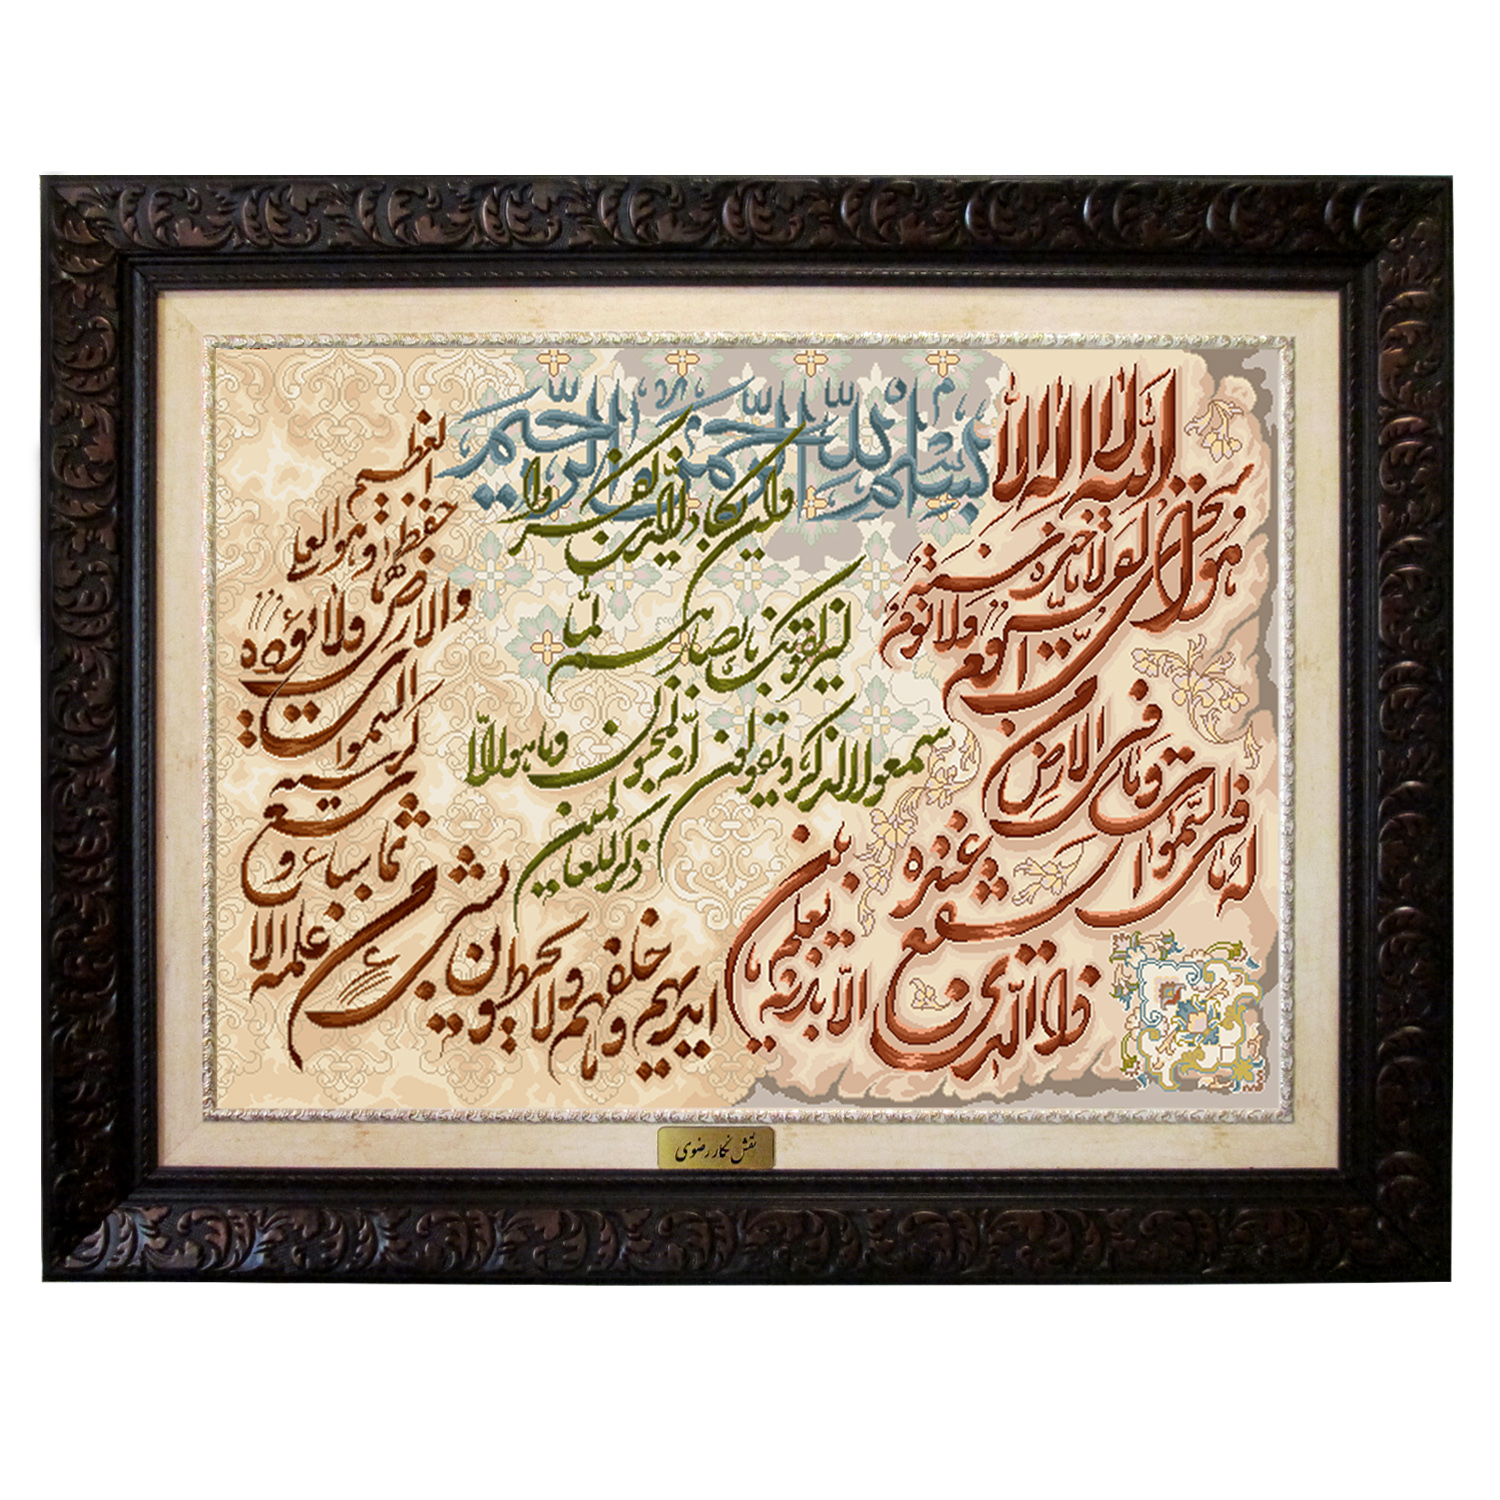 بسم الله الرحمن الرحیم
الله لا اله الا
هو الحی القیوم لا تاخذه سنة ولا نوم
له ما فی السموات وما فی الارض
من ذا الذی یشفع عنده
الا باذنه یعلم ما بین
ایدیهم وما خلفهم ولا یحیطون بشی من
علمه الا بما شاء و
سع کرسیه السموات
والارض ولا یؤده
حفظهما وهو العلی
العظیم
وان یکاد الذین کفروا
لیزلقونک بابصارهم لما
سمعوا الذکر ویقولون انه لمجنون وما هو الا
ذکر للعالمین
نقش نگار رضوی